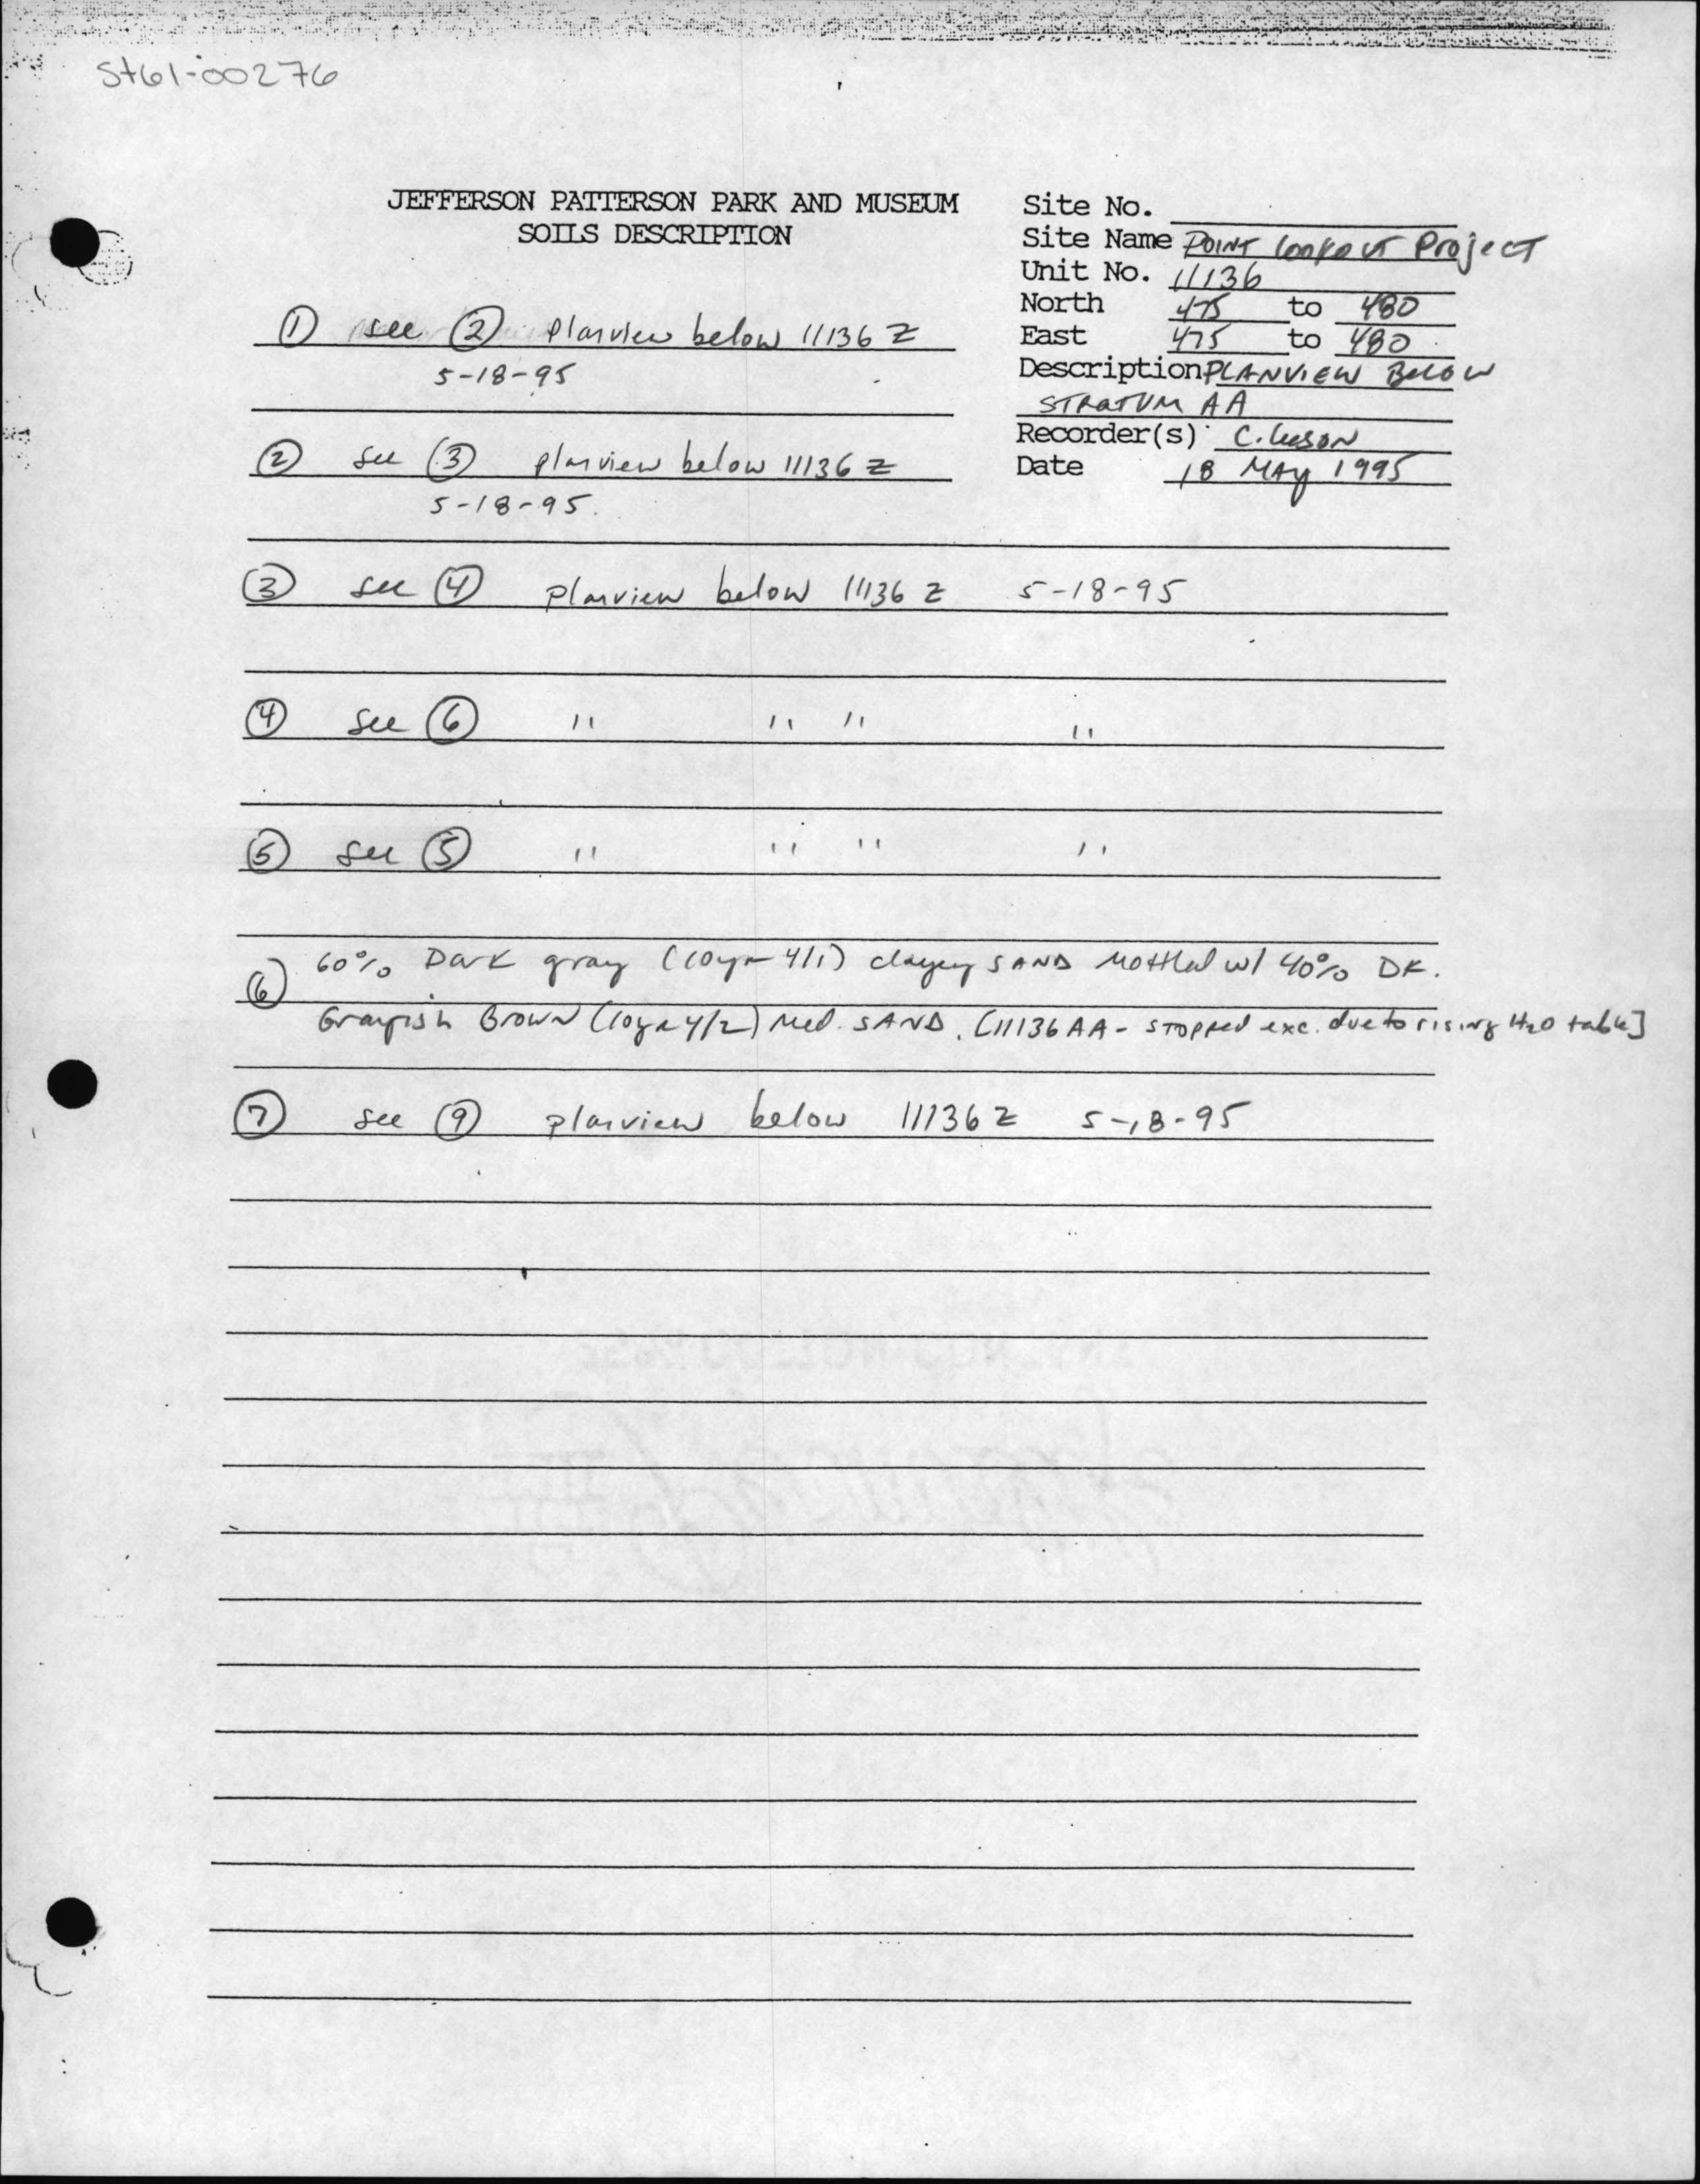 St61-00276
JEFFERSON PATTERSON PARK AND MUSEUM
SOILS DESCRIPTION
Site No.
Site Name POINT Lookout Project
Unit No. 11136
North 475 to 480
East 475 to 480
Description PLANVIEW BELOW
STRATUM AA
Recorder(s) C.
Date 18 MAY 1995
① see ② planview below 11136 Z
5-18-95
② see ③ planview below 11136 Z
5-18-95.
③ see ④ planview below 11136 Z 5-18-95
④ see ⑥ " " " "
⑤ see ⑤ " " " "
⑥ 60% Dark gray (10yr 4/1) clayey SAND mottled w/ 40% DK.
Grayish Brown (10yr 4/2) Med. SAND. [11136 AA - stopped exc. due to rising H2O table]
⑦ see ⑨ planview below 11136 Z 5-18-95